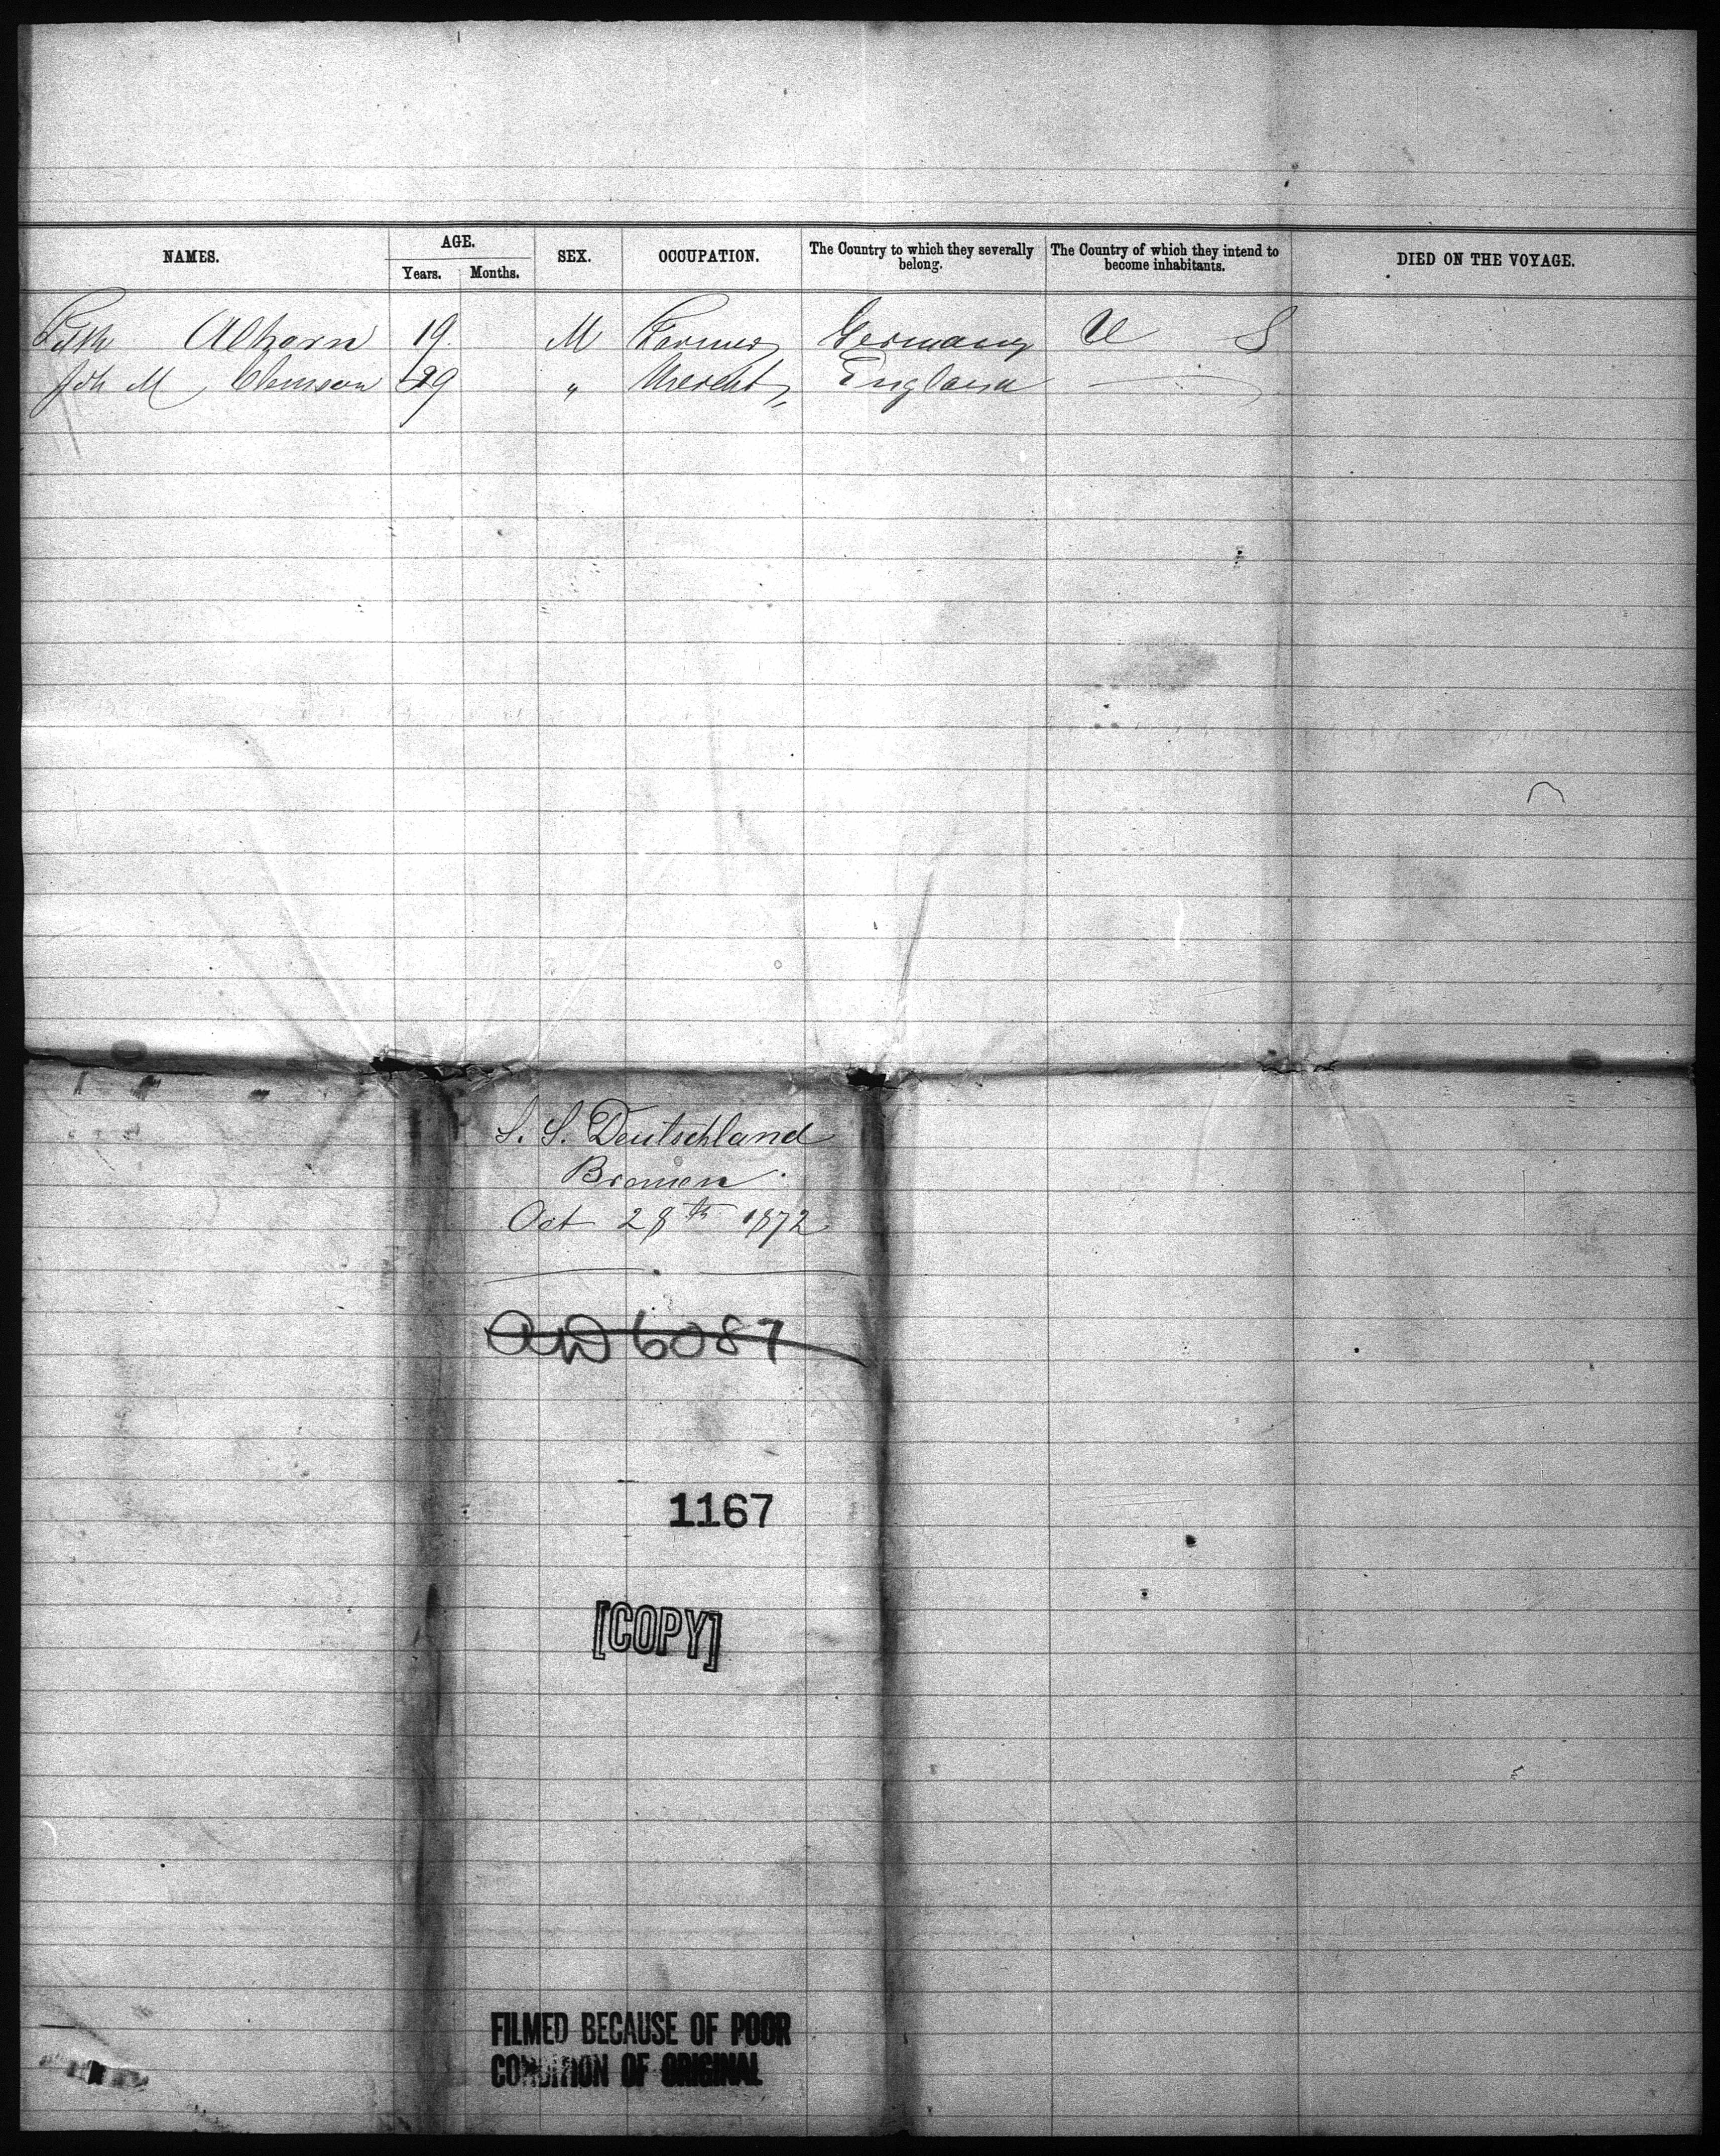 NAMES. AGE. SEX. OCCUPATION. The Country to which they severally belong. The Country of which they intend to become inhabitants. DIED ON THE VOYAGE.
Years. Months.
Alhorn 19 M Farmer Germany U S
Joh M Clemson 29 " Mercht " England
S. S. Deutschland
Bremen
Oct 28th 1872
6087
1167
[COPY]
FILMED BECAUSE OF POOR
CONDITION OF ORIGINAL